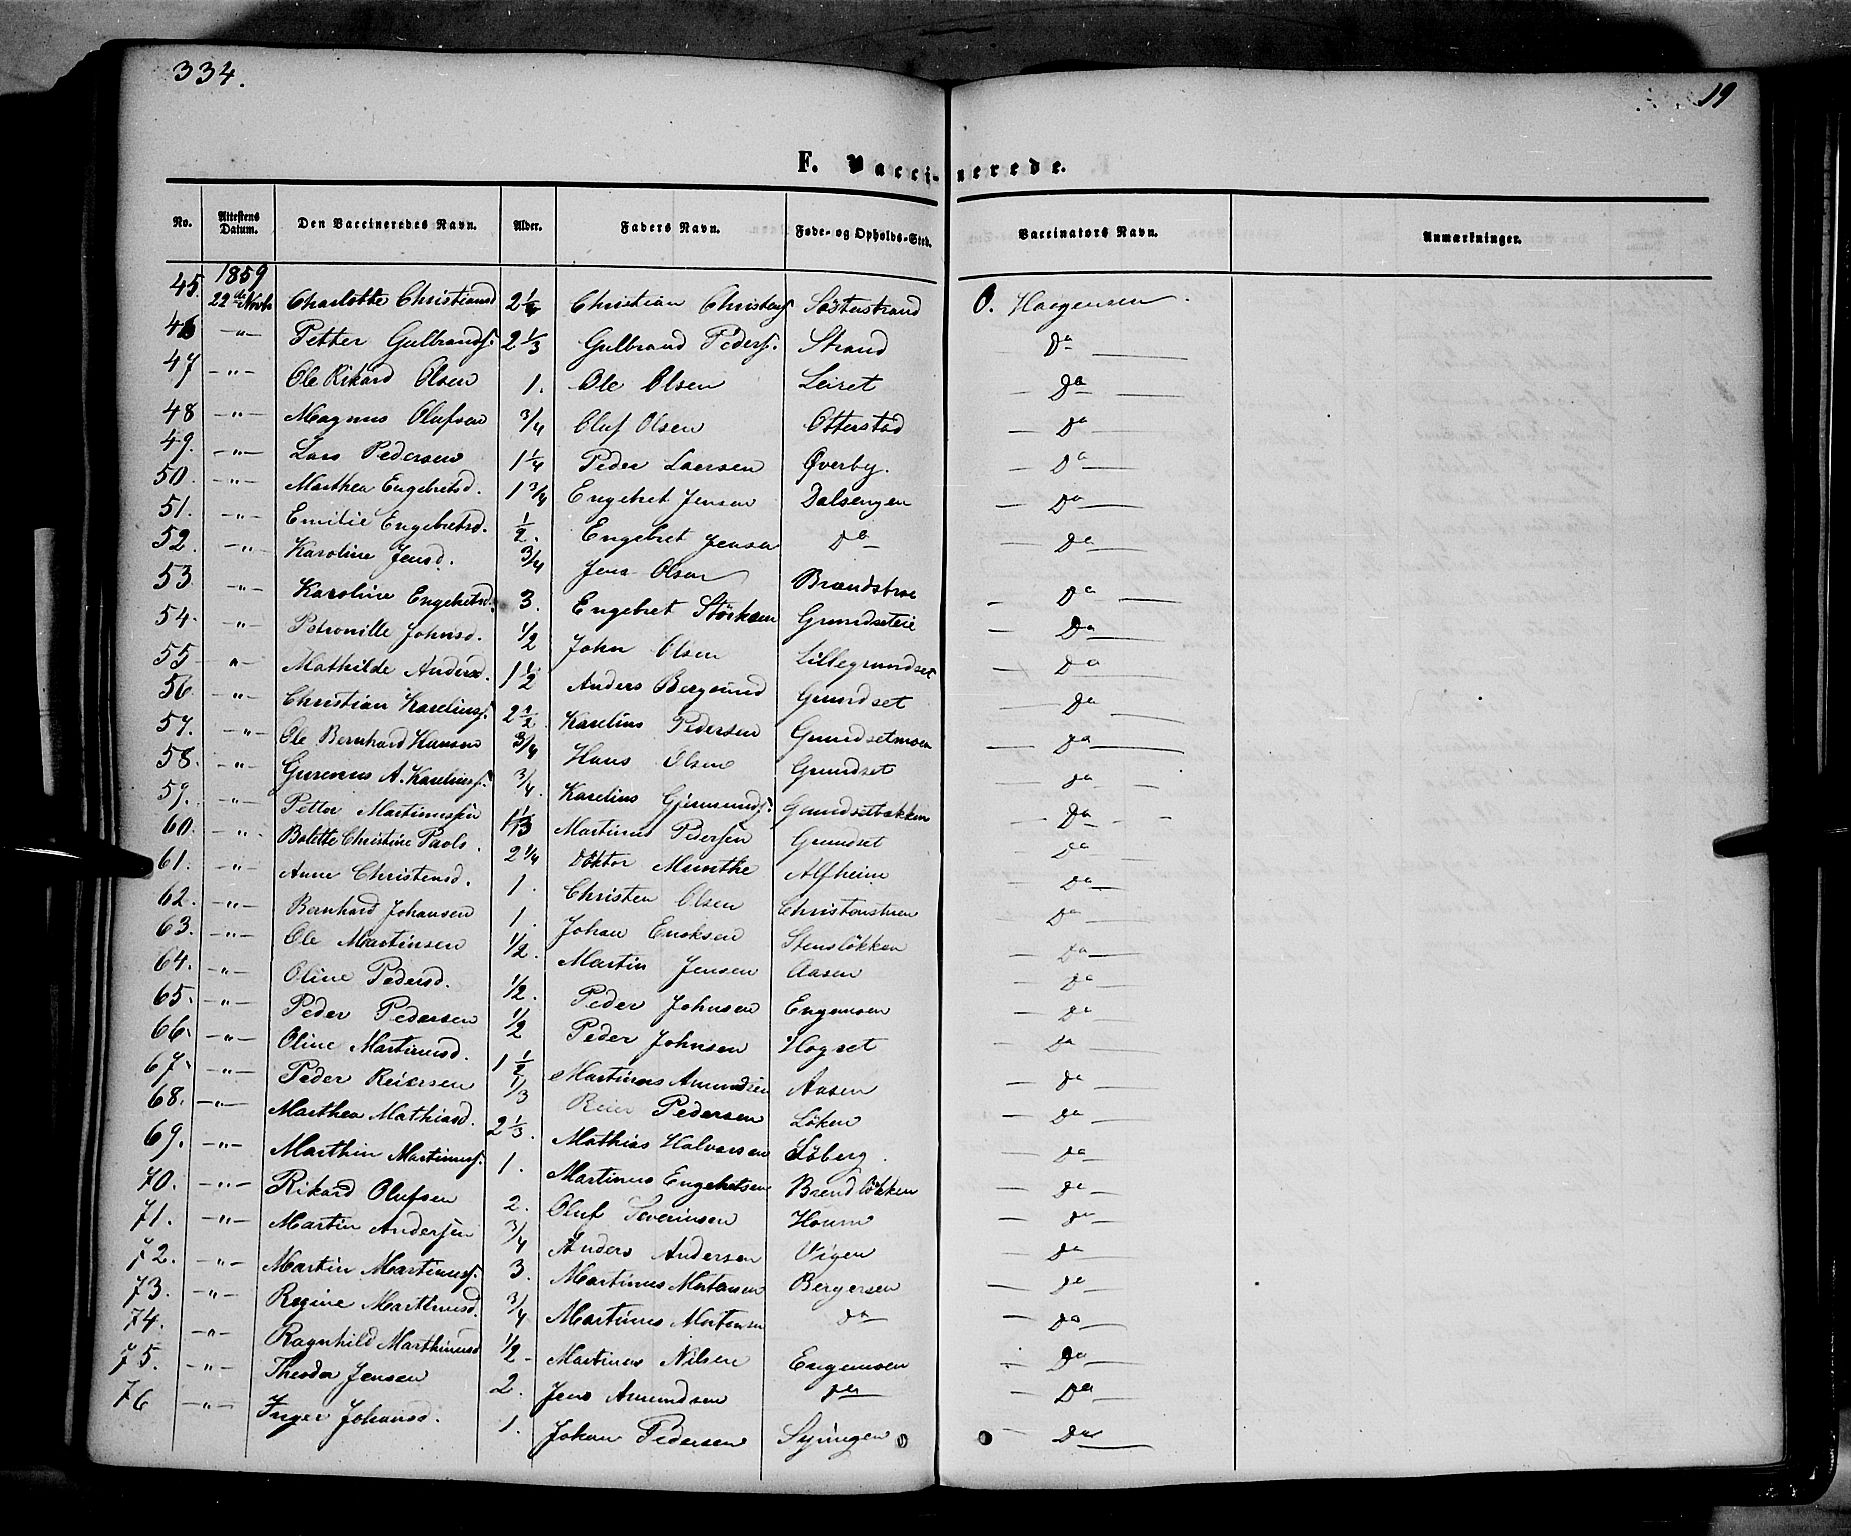 334.
19
F. Vaccinerede.
No. Attestens Datum. Den Vaccineredes Navn. Alder. Faders Navn. Føde- og Opholds-Sted. Vaccinators Navn. Anmærkninger.
1859
45. 22de Novbr Charlotte Christiansd 2 Christian Christians Sösterstrand O. Haagensen
46 -"- Petter Gulbrands. 2 1/3 Gulbrand Peders. Strand — Da —
47 -"- Ole Rikard Olsen 1. Ole Olsen Leiret — Da —
48 -"- Magnus Olufsen 3/4 Oluf Olsen Otterstad — Da —
49. -"- Lars Pedersen 1 1/4 Peder Laersen Øverby. — Da —
50. -"- Marthea Engebretsd. 1 3/4 Engebret Jensen Dalsengen — Da —
51. -"- Emilie Engebretsd. 1/2. Engebret Jensen Da — Da —
52. -"- Karoline Jensd. 3/4 Jens Olsen Brændstroe — Da —
53. -"- Karoline Engebretsd. 3. Engebret Störksen Grundseteie — Da —
54. -"- Petronille Johnsd. 1/2 John Olsen Lillegrundset — Da —
55 -"- Mathilde Andersd. 1 1/2 Anders Bergsund Grundset — Da —
56 -"- Christian Kareliuss. 2 1/2 Karelius Pedersen Grundsetmoen — Da —
57. -"- Ole Bernhard Hansen 3/4 Hans Olsen Grundset — Da —
58. -"- A. Kareliuss. 3/4. Karelius Gjermunds. Grundsetbakken — Da —
59. -"- Petter Martinussen Martinus Pedersen Grundset — Da —
60. -"- Bolette Christine Paols. 2 1/4 Doktor Munthe Alfheim — Da —
61. -"- Anne Christensd. 1. Christen Olsen — Da —
62. -"- Bernhard Johansen 1. Johan Ericksen Stenslökken — Da —
63. -"- Ole Martinsen 1/2. Martin Jensen Aasen — Da —
64. -"- Oline Pedersd. 1/2. Peder Johnsen Engemoen — Da —
65. -"- Peder Pedersen 1/2 Peder Johnsen Hogset — Da —
66. -"- Oline Martinusd. 1 1/2 Martinus Amundsen Aasen — Da —
67. -"- Peder Reiersen 1/3 Reier Pedersen Löken — Da —
68. -"- Marthea Mathiasd. 2 1/3. Mathias Halvorsen Söberg. — Da —
69. -"- Marthin Martinuss. 1. Martinus Engebretsen Brendlökken — Da —
70. -"- Rikard Olufsen 2. Oluf Severinsen Houm — Da —
71. -"- Martin Andersen 3/4 Anders Andersen Vigen — Da —
72. -"- Martin Martinuss. 3. Martinus Mortensen Bergersen — Da —
73. -"- Regine Marthinusd. 3/4 Martinus Mortensen Da — Da —
74. -"- Ragnhild Marthinusd 1/2 Martinus Nilsen Engemoen — Da —
75. -"- Theodor Jensen 2. Jens Amundsen Da — Da —
76 -"- Inger Johansd. 1. Johan Pedersen — Da —